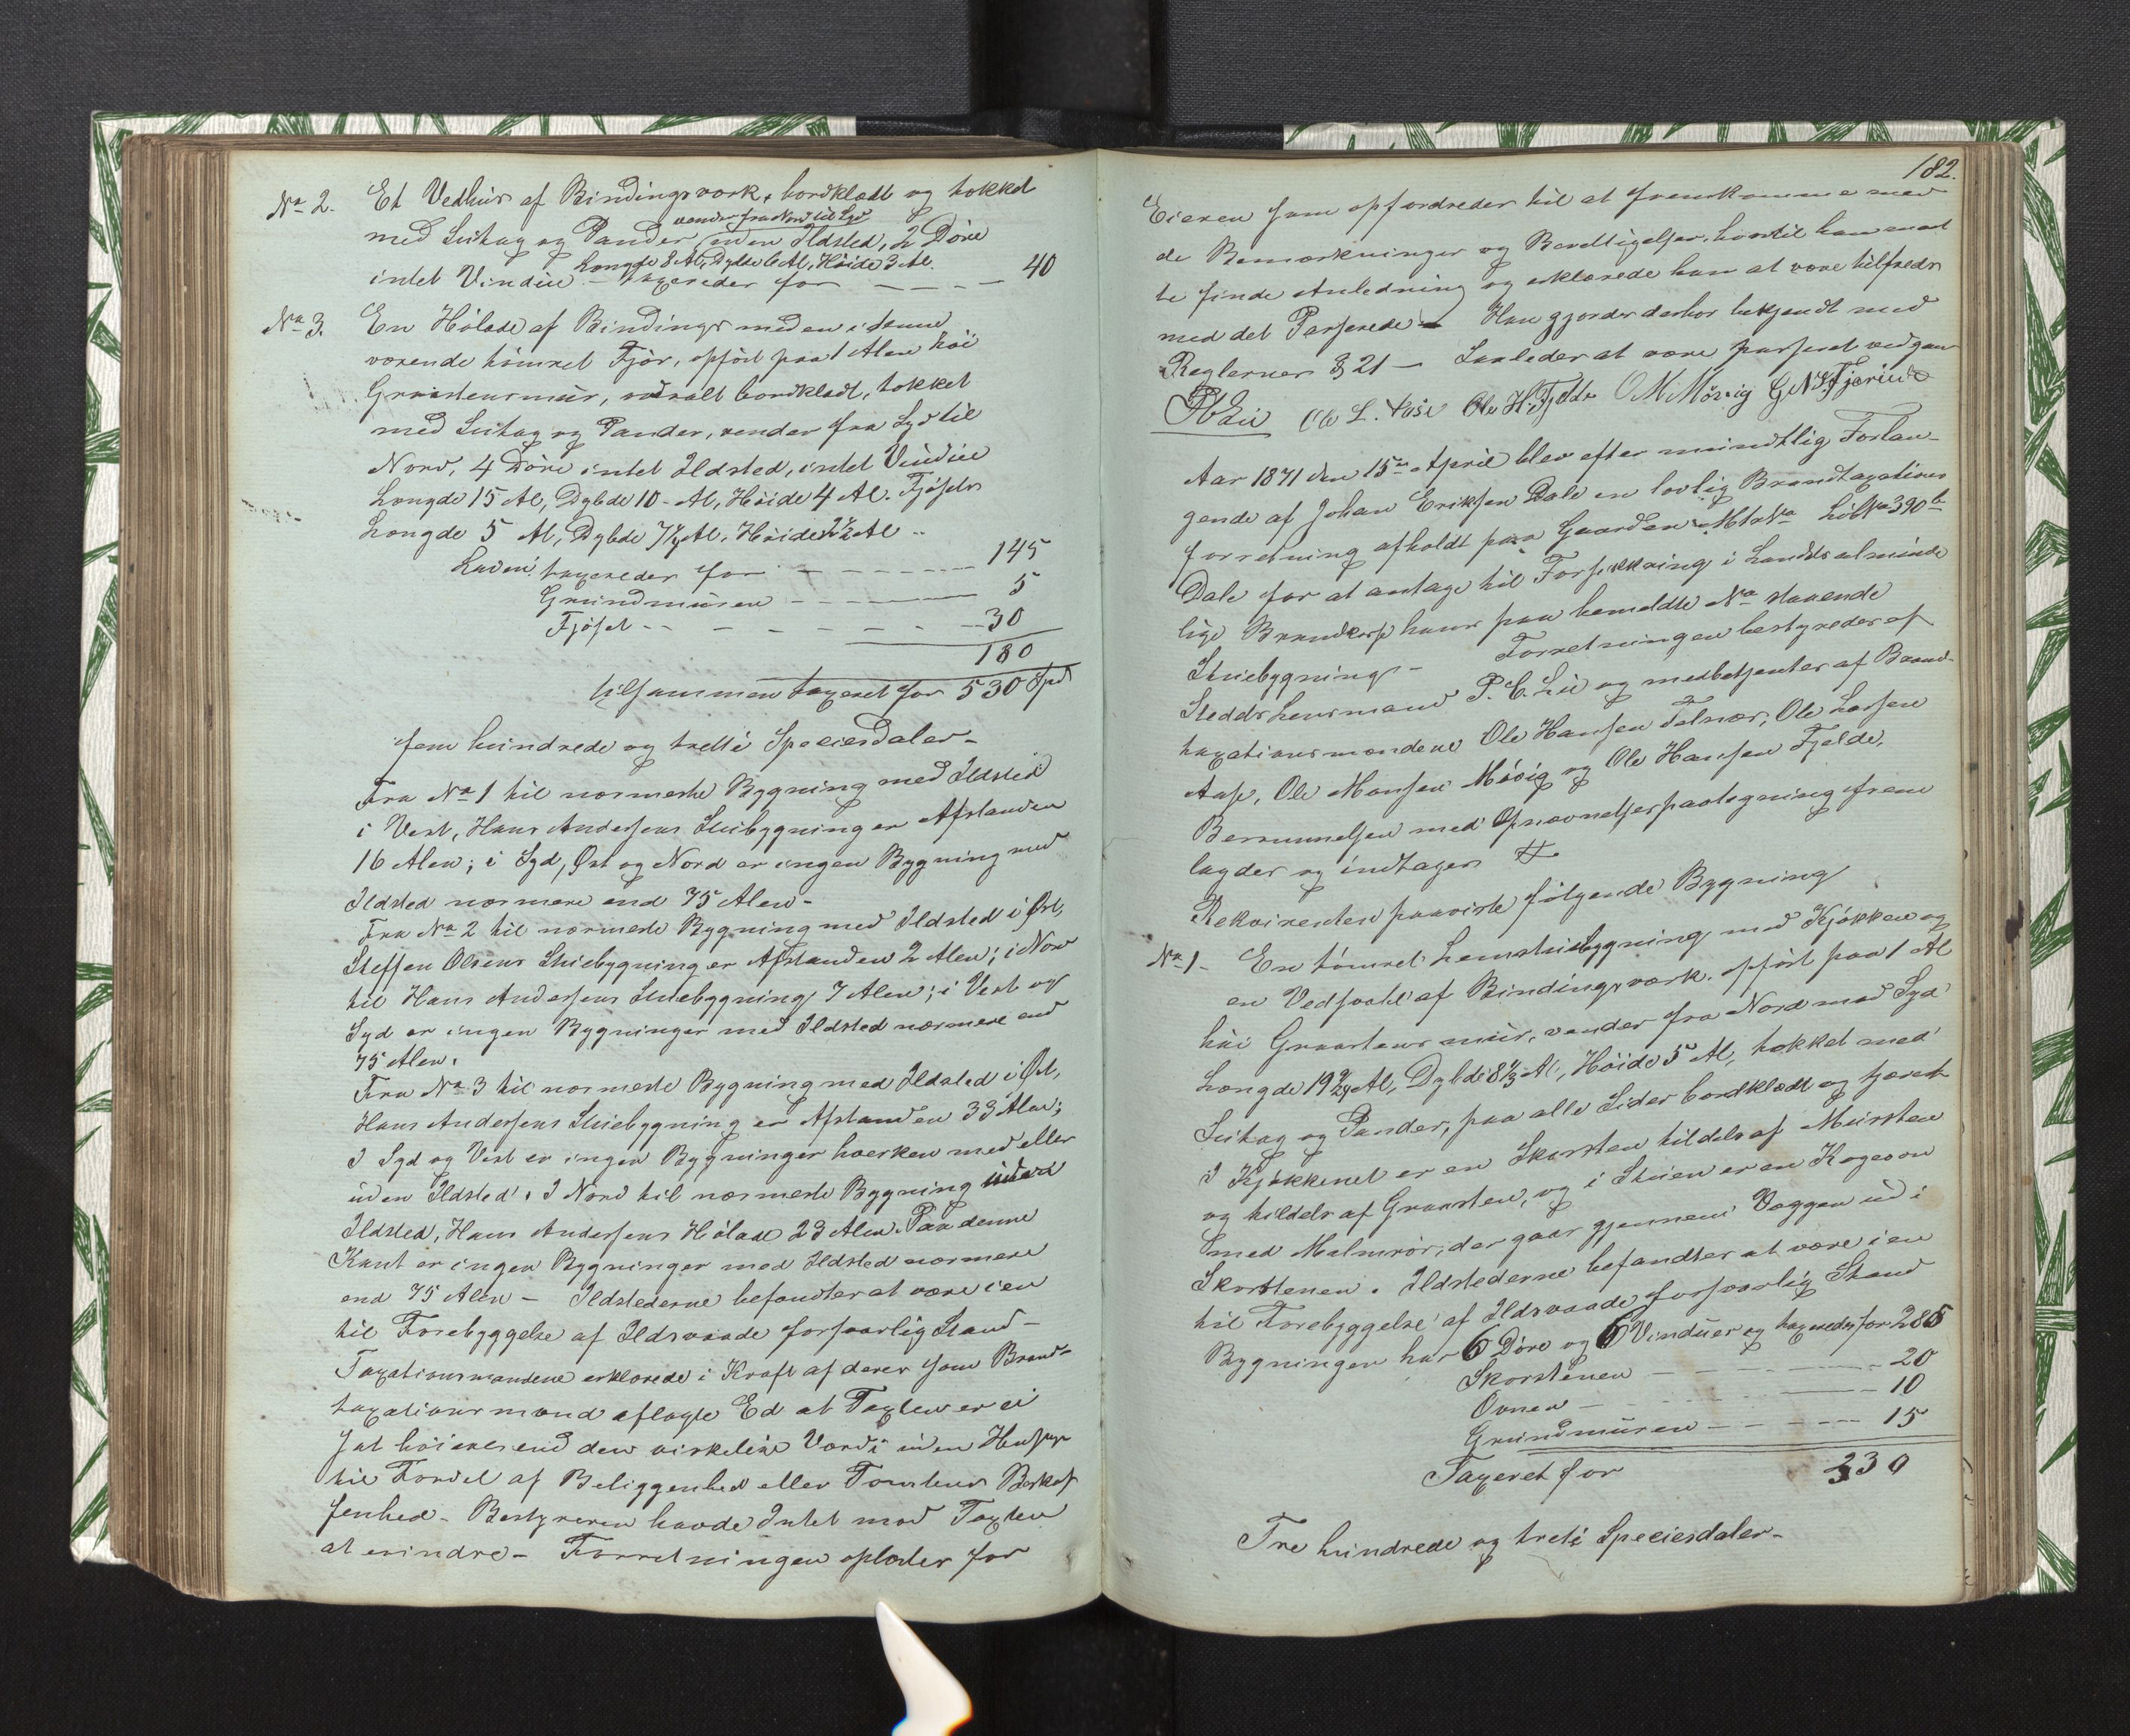 No 2. Et Vedhus af Bindingsværk, bordklædt og tækket
med Listag og Pander, vender fra Nord til Syd uden Ildsted, 2 Døre
intet Vindue – Længde 8 Al, Dybde 6 Al, Høide 3 Al. taxeredes for — — — 40
No 3. En Hølade af Bindings med en i denne
værende tømret Fjøs, opført paa 1 Alen høi
Graastensmur, bordklædt, tækket
med Listag og Pander, vender fra Syd til
Nord, 4 Døre intet Ildsted, intet Vindue
Længde 15 Al, Dybde 10 – Al, Høide 4 Al. Fjøsets
Længde 5 Al, Dybde 7 1/4 Al, Høide 2 1/2 Al –
Laden taxeredes for — — — 145
Grundmuren — — — 5
Fjøset — — — 30
180
tilsammen taxeret for 530 Spd
fem hundrede og tretti Speciesdaler –
Fra No 1 til nærmeste Bygning med Ildsted
i Vest, Hans Andersens Stuebygning er Afstanden
16 Alen; i Syd, Øst og Nord er ingen Bygning med
Ildsted nærmere end 75 Alen –
Fra No 2 til nærmeste Bygning med Ildsted i Øst,
Steffen Olsens Stuebygning er Afstanden 2 Alen; i Nord
til Hans Andersens Stuebygning 7 Alen; i Vest og
Syd er ingen Bygninger med Ildsted nærmere end
75 Alen.
Fra No 3 til nærmeste Bygning med Ildsted i Øst,
Hans Andersens Stuebygning er Afstanden 33 Alen;
I Syd og Vest er ingen Bygninger hverken med eller
uden Ildsted. I Nord til nærmeste Bygning uden
Ildsted, Hans Andersens Hølade 23 Alen. Paa denne
Kant er ingen Bygninger med Ildsted nærmere
end 75 Alen – Ildstederne befandtes at være i en
til Forebyggelse af Ildsvaade forsvarlig Stand –
Taxationsmændene erklærede i Kraft af deres som Brand-
taxationsmænd aflagte Ed at Taxten er ei
sat høiere end den virkelige Værdi uden Hensyn
til Fordel af Beliggenhed eller Tomtens Beskaf
fenhed – Bestyreren havde Intet mod Taxten
at erindre – Forretningen oplæstes for
182.
Eieren som opfordredes til at fremkomme med
de Bemærkninger og Berettigelser, hvortil han maat
te finde Anledning og erklærede han at være tilfreds
med det Passerede – Han gjordes derhos bekjendt med
Reglernes § 21 – Saaledes at være passeret vedgaar
P. C. Lie Ole L. Aase Ole H. Fjelde O M Møvig
Aar 1871 den 15de April blev efter mundtlig Forlan-
gende af Johan Eriksen Dale en lovlig Brandtaxations
forretning afholdt paa Gaarden Mtr No Løb No 390 b
Dale for at antage til Forsikkring i Landets alminde
lige Brandkasse hans paa bemeldte No staaende
Stuebygning – Forretningen bestyredes af
Stedets Lensmand P. C. Lie og medbetjentes af Brand-
taxationsmændene Ole Hansen Felnær, Ole Larsen
Aase, Ole Monsen Møvig og Ole Hansen Fjelde,
Berammelsen med Opnævnelsespaategning frem
lagdes og indtages #
Rekvirenten paaviste følgende Bygning
No 1 – En tømret Lemstuebygning med Kjøkken og
en Vedsvale af Bindingsværk. opført paa 1 Al
høi Graastens muur, vender fra Nord mod Syd
Længde 19 Al, Dybde 8 1/3 Al, Høide 5 Al, tækket med
Listag og Pander, paa alle Sider bordklædt og tjæret
I Kjøkkenet er en Skorsten tildels af Mursten
og tildels af Graasten, og i Stuen er en Kogeovn
med Malmrør, der gaar gjennem Væggen ud i
Skorstenen. Ildstederne befandtes at være i en
til Forebyggelse af Ildsvaade forsvarlig Stand
Bygningen har 6 Døre og 6 Vinduer og taxeredes for 285
Skorstenen — — — 20
Ovnen — — — 10
Grundmuren — — — 15
Taxeret for 330
Tre hundrede og treti Speciesdaler –